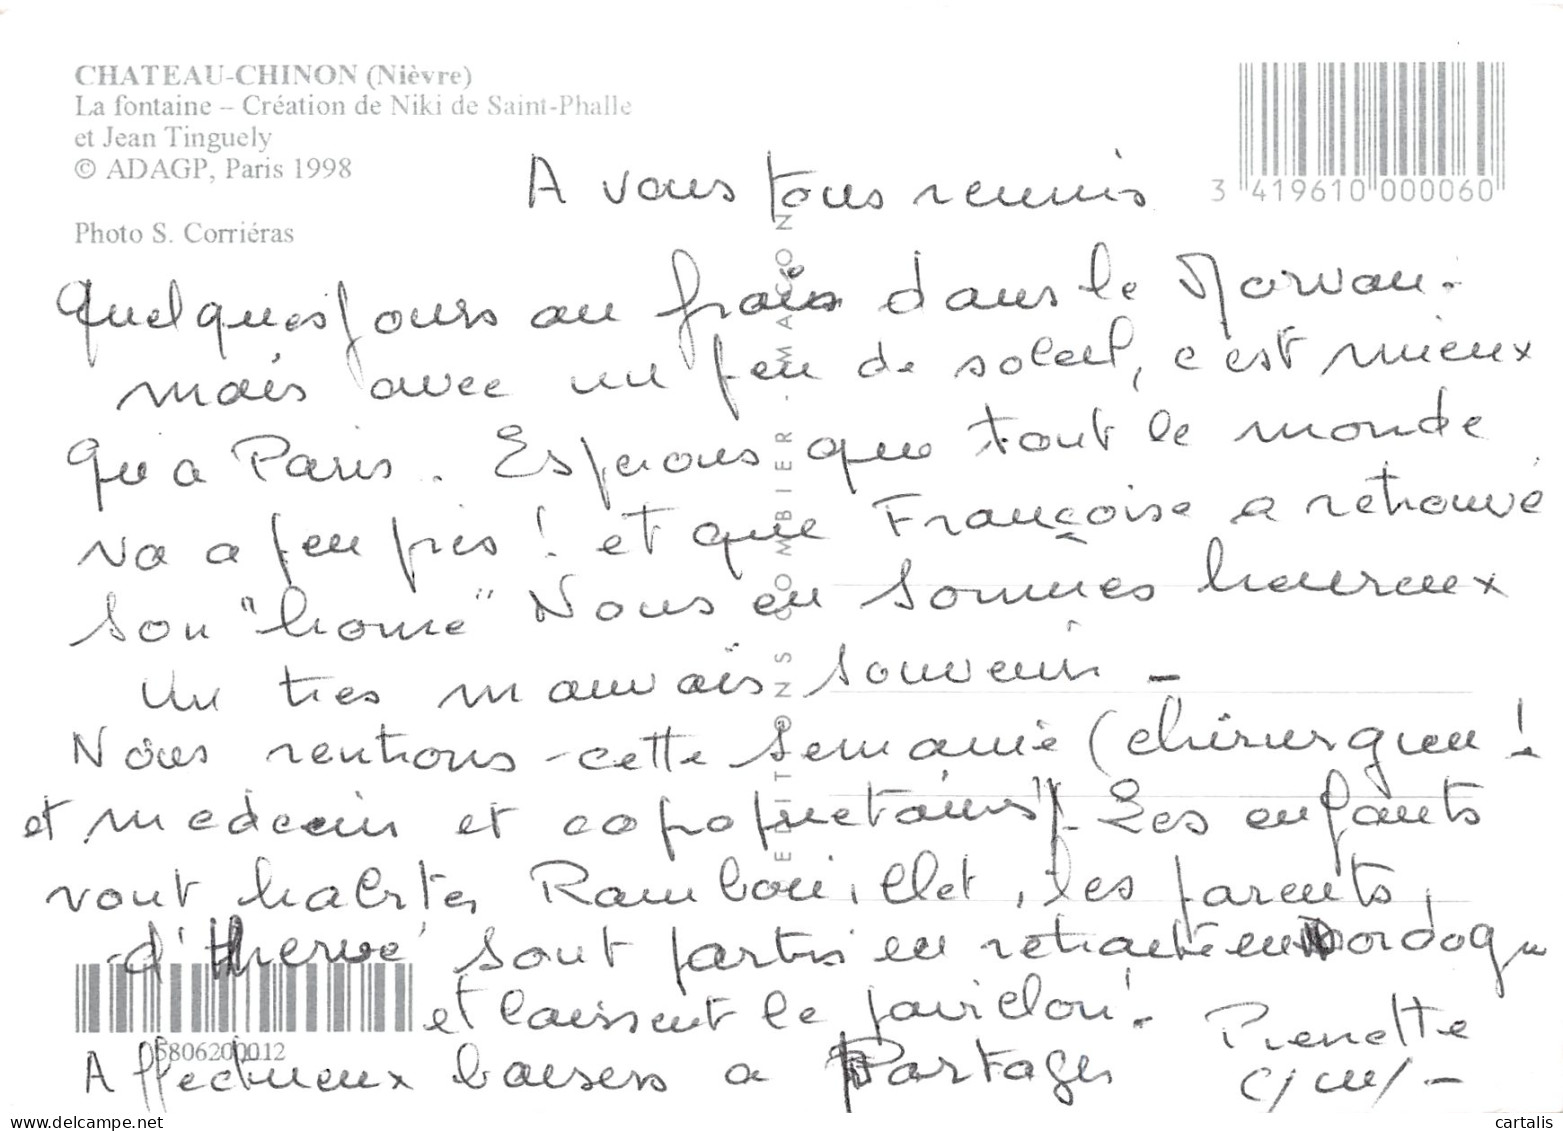 CHATEAU-CHINON (Nièvre)
La fontaine – Création de Niki de Saint-Phalle
et Jean Tinguely
© ADAGP, Paris 1998
Photo S. Corriéras
3 419610 000060
EDITIONS COMBIER - MACON
A vous tous reunis
Quelques jours au frais dans le Morvan.
mais avec un peu de soleil, c'est mieux
qu'a Paris. Esperons que tout le monde
va a peu pres ! et que Françoise a retrouvé
son "home" Nous en sommes heureux
Un tres mauvais souvenir -
Nous rentrons cette semaine (chirurgien !
et medecin et coproprietaires). Les enfants
vont habiter Rambouillet, les parents
d'Herve sont partis en retraite en Dordogne
et laissent le pavillon ! - Pierrette
5806200012
Affectueux baisers a Partager